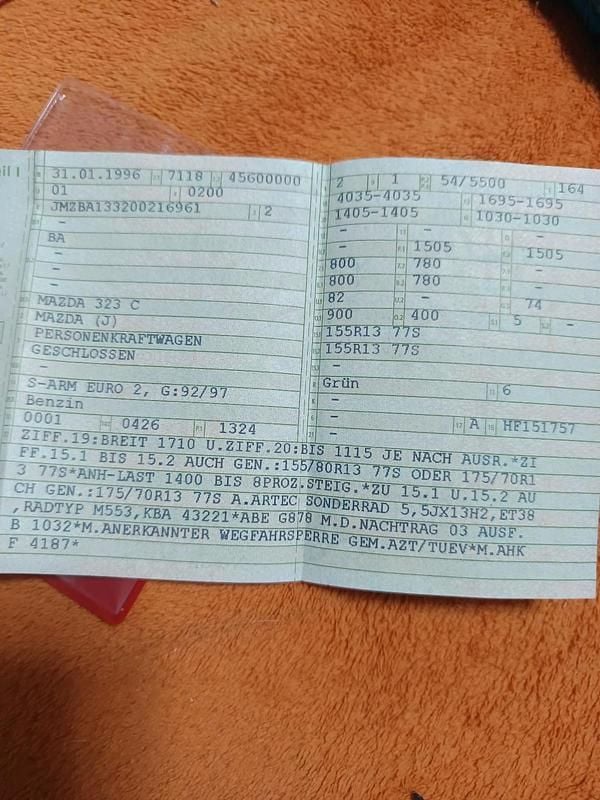 31.01.1996 7118 45600000
01 0200
JMZBA133200216961 2
-
BA
-
-
MAZDA 323 C
MAZDA (J)
PERSONENKRAFTWAGEN
GESCHLOSSEN
-
S-ARM EURO 2, G:92/97
Benzin
0001 0426 1324
2 1 54/5500 164
4035-4035 1695-1695
1405-1405 1030-1030
- - -
- 1505 1505
800 780 -
800 780 -
82 - 74
900 400 5 -
155R13 77S
155R13 77S
-
Grün 6
-
- A HF151757
-
ZIFF.19:BREIT 1710 U.ZIFF.20:BIS 1115 JE NACH AUSR.*ZI
FF.15.1 BIS 15.2 AUCH GEN.:155/80R13 77S ODER 175/70R1
3 77S*ANH-LAST 1400 BIS 8PROZ.STEIG.*ZU 15.1 U.15.2 AU
CH GEN.:175/70R13 77S A.ARTEC SONDERRAD 5,5JX13H2,ET38
,RADTYP M553,KBA 43221*ABE G878 M.D.NACHTRAG 03 AUSF.
B 1032*M.ANERKANNTER WEGFAHRSPERRE GEM.AZT/TUEV*M.AHK
F 4187*